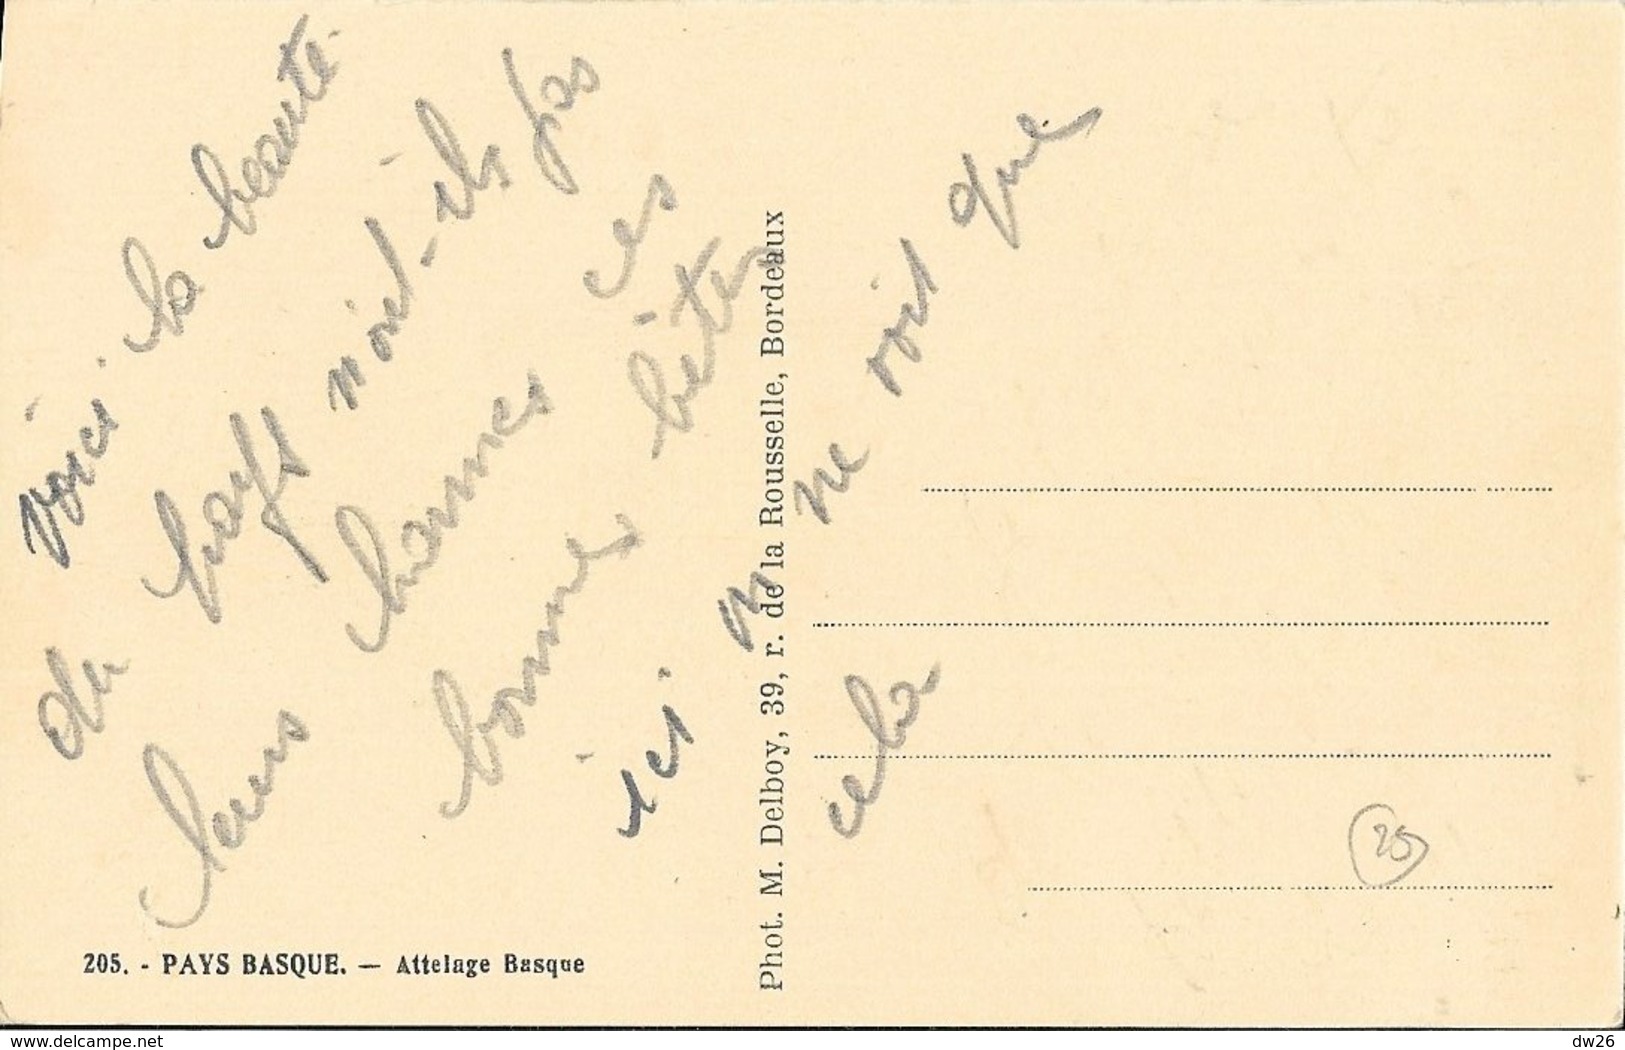 voici la beauté
du pays n'ont-ils pas
leurs charmes ces
bonnes bêtes
ici on ne voit que
cela
205. - PAYS BASQUE. — Attelage Basque
Phot. M. Delboy, 39, r. de la Rousselle, Bordeaux
25
www.delcampe.net
dw26